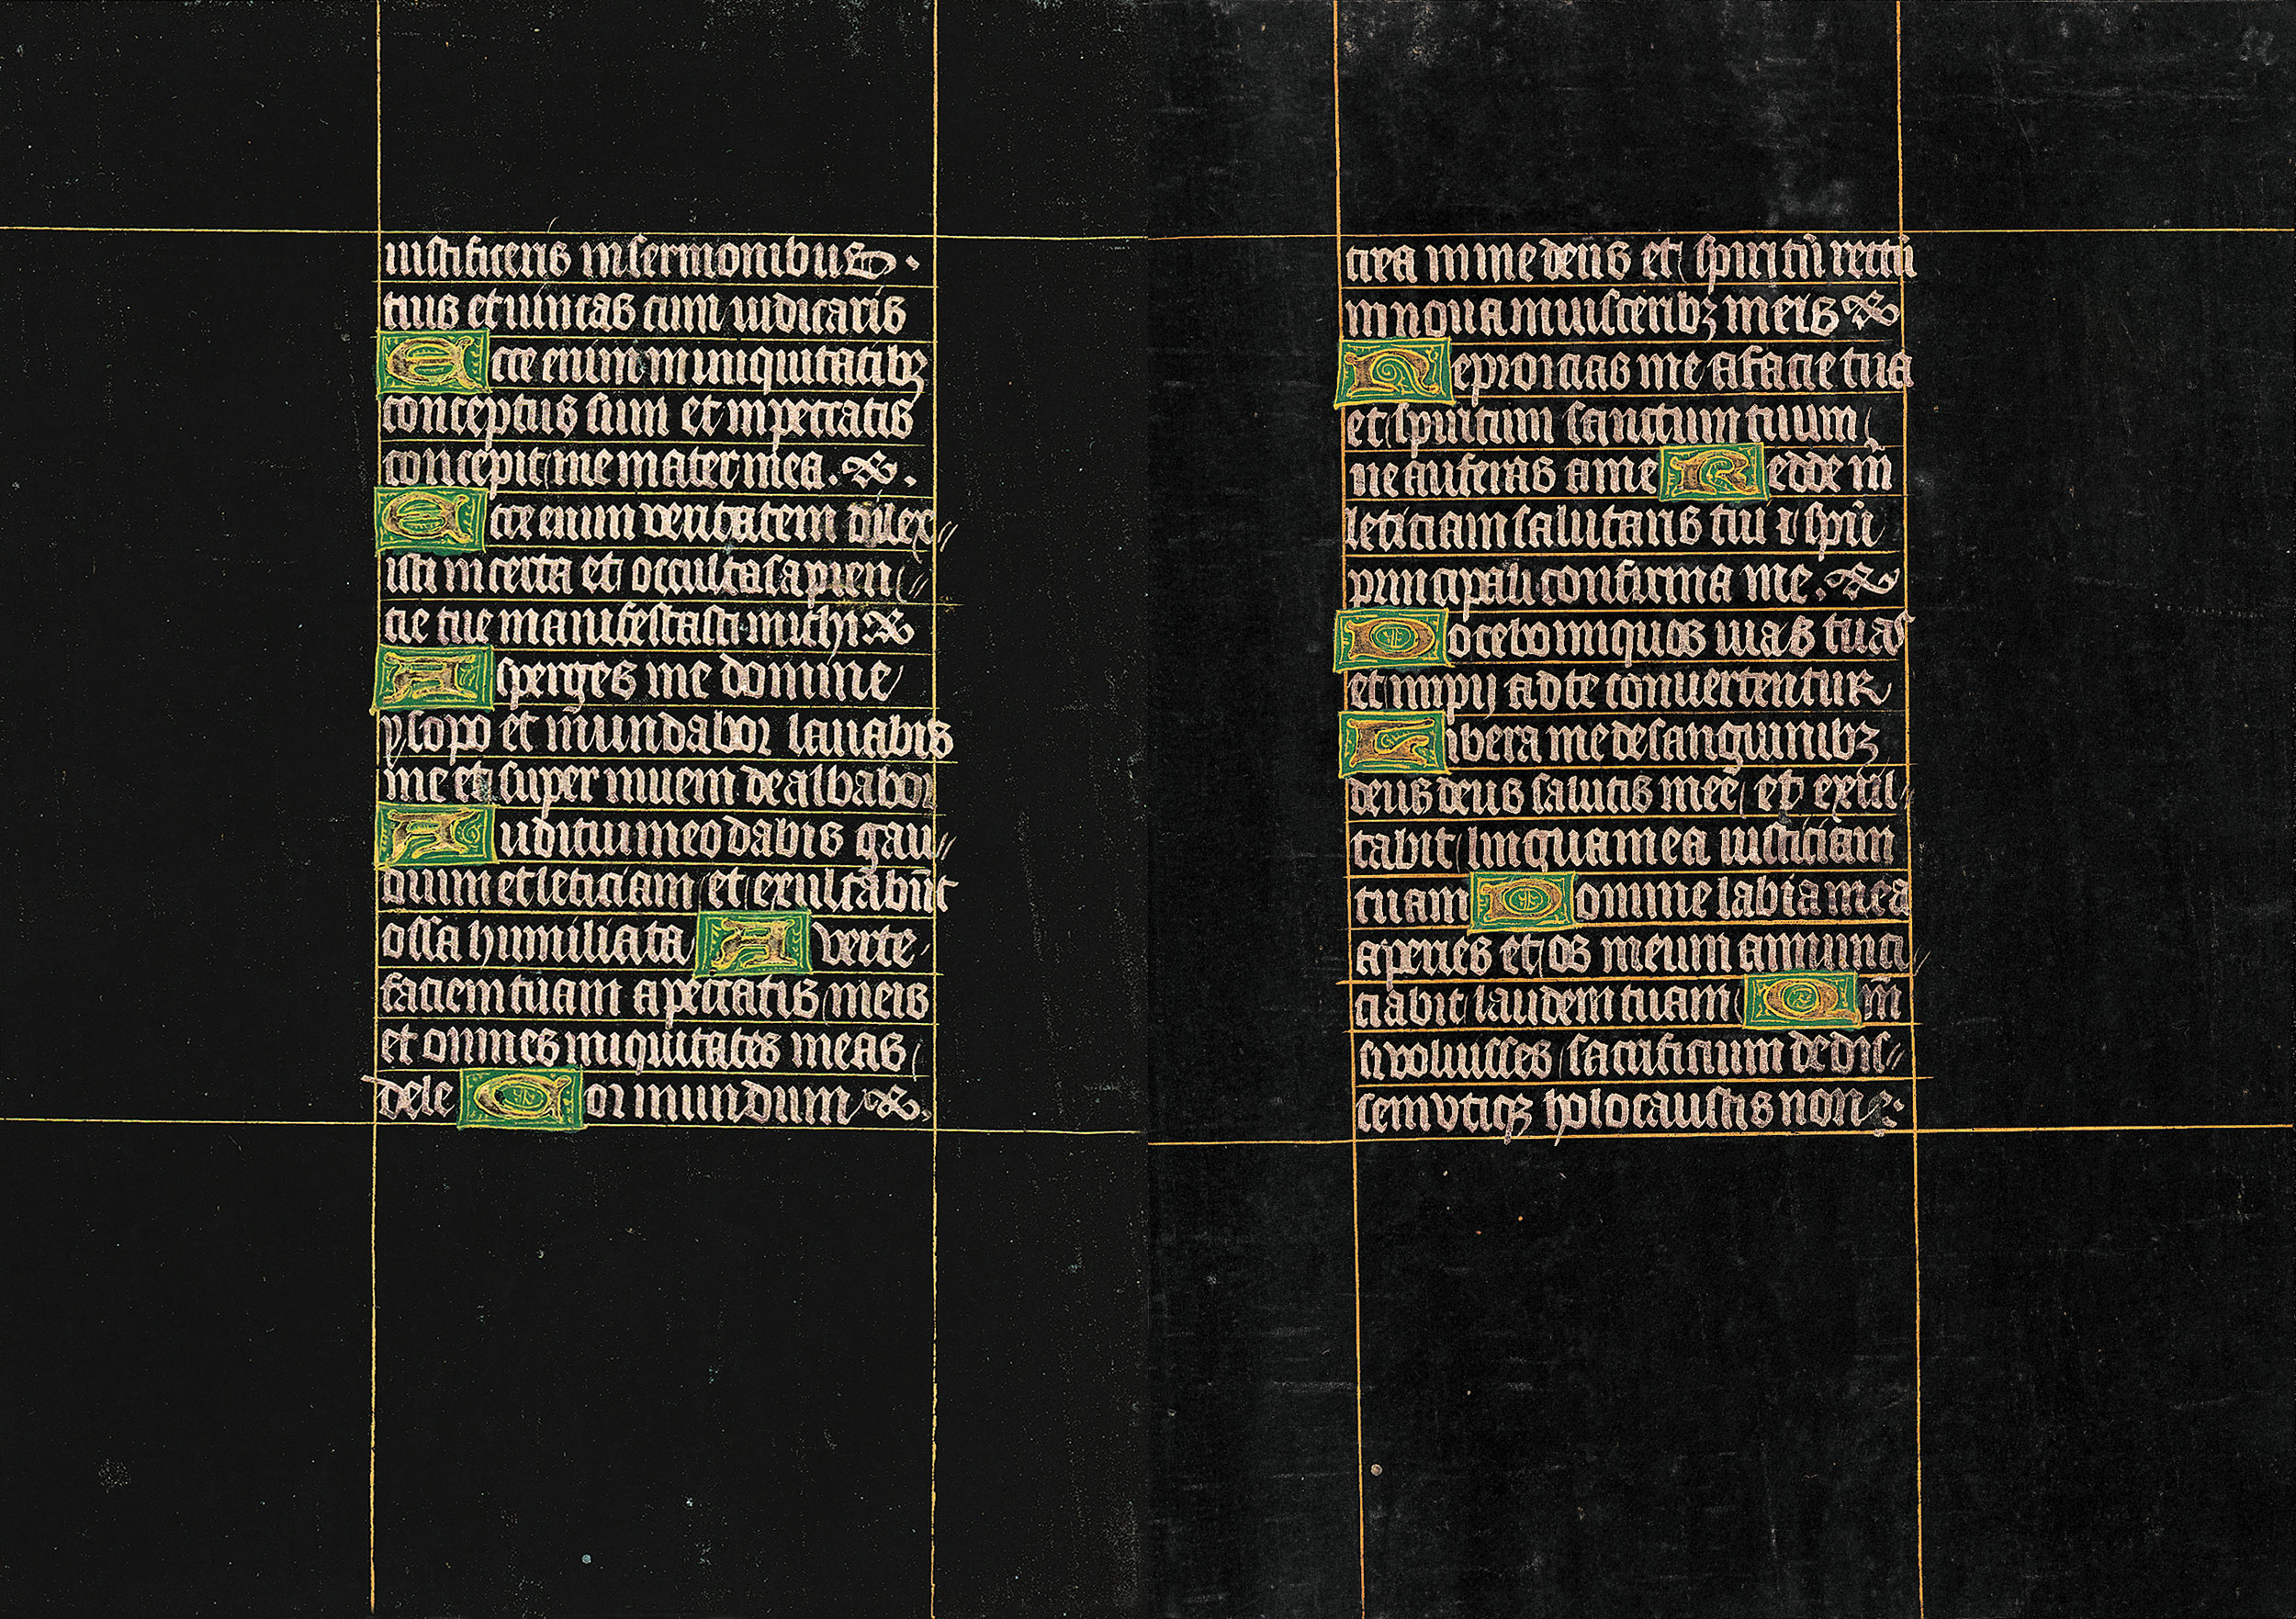 iustificeris in sermonibus
tuis et uincas cum iudicaris
Ecce enim in iniquitatibꝫ
conceptus sum et in peccatis
concepit me mater mea.
Ecce enim veritatem dilex〃
isti incerta et occulta sapien〃
cie tue manifestasti michi
Asperges me domine
ysopo et mundabor lauabis
me et super niuem dealbabor
Auditui meo dabis gau〃
dium et leticiam et exultabūt
ossa humiliata Auerte
faciem tuam a peccatis meis
et omnes iniquitates meas
dele Cor mundum
crea in me deus et spiritū rectū
innoua in uisceribꝫ meis
Ne proicias me a facie tua
et spiritum sanctum tuum
ne auferas a me Redde m̄
leticiam salutaris tui ⁊ spū
principali confirma me.
Docebo iniquos uias tuas
et impij ad te conuertentur
Libera me de sanguinibꝫ
deus deus salutis mee et exul〃
tabit lingua mea iusticiam
tuam Domine labia mea
aperies et os meum annunci〃
ciabit laudem tuam Qm̄
si voluisses sacrificium dedis〃
sem vtiqꝫ holocaustis non